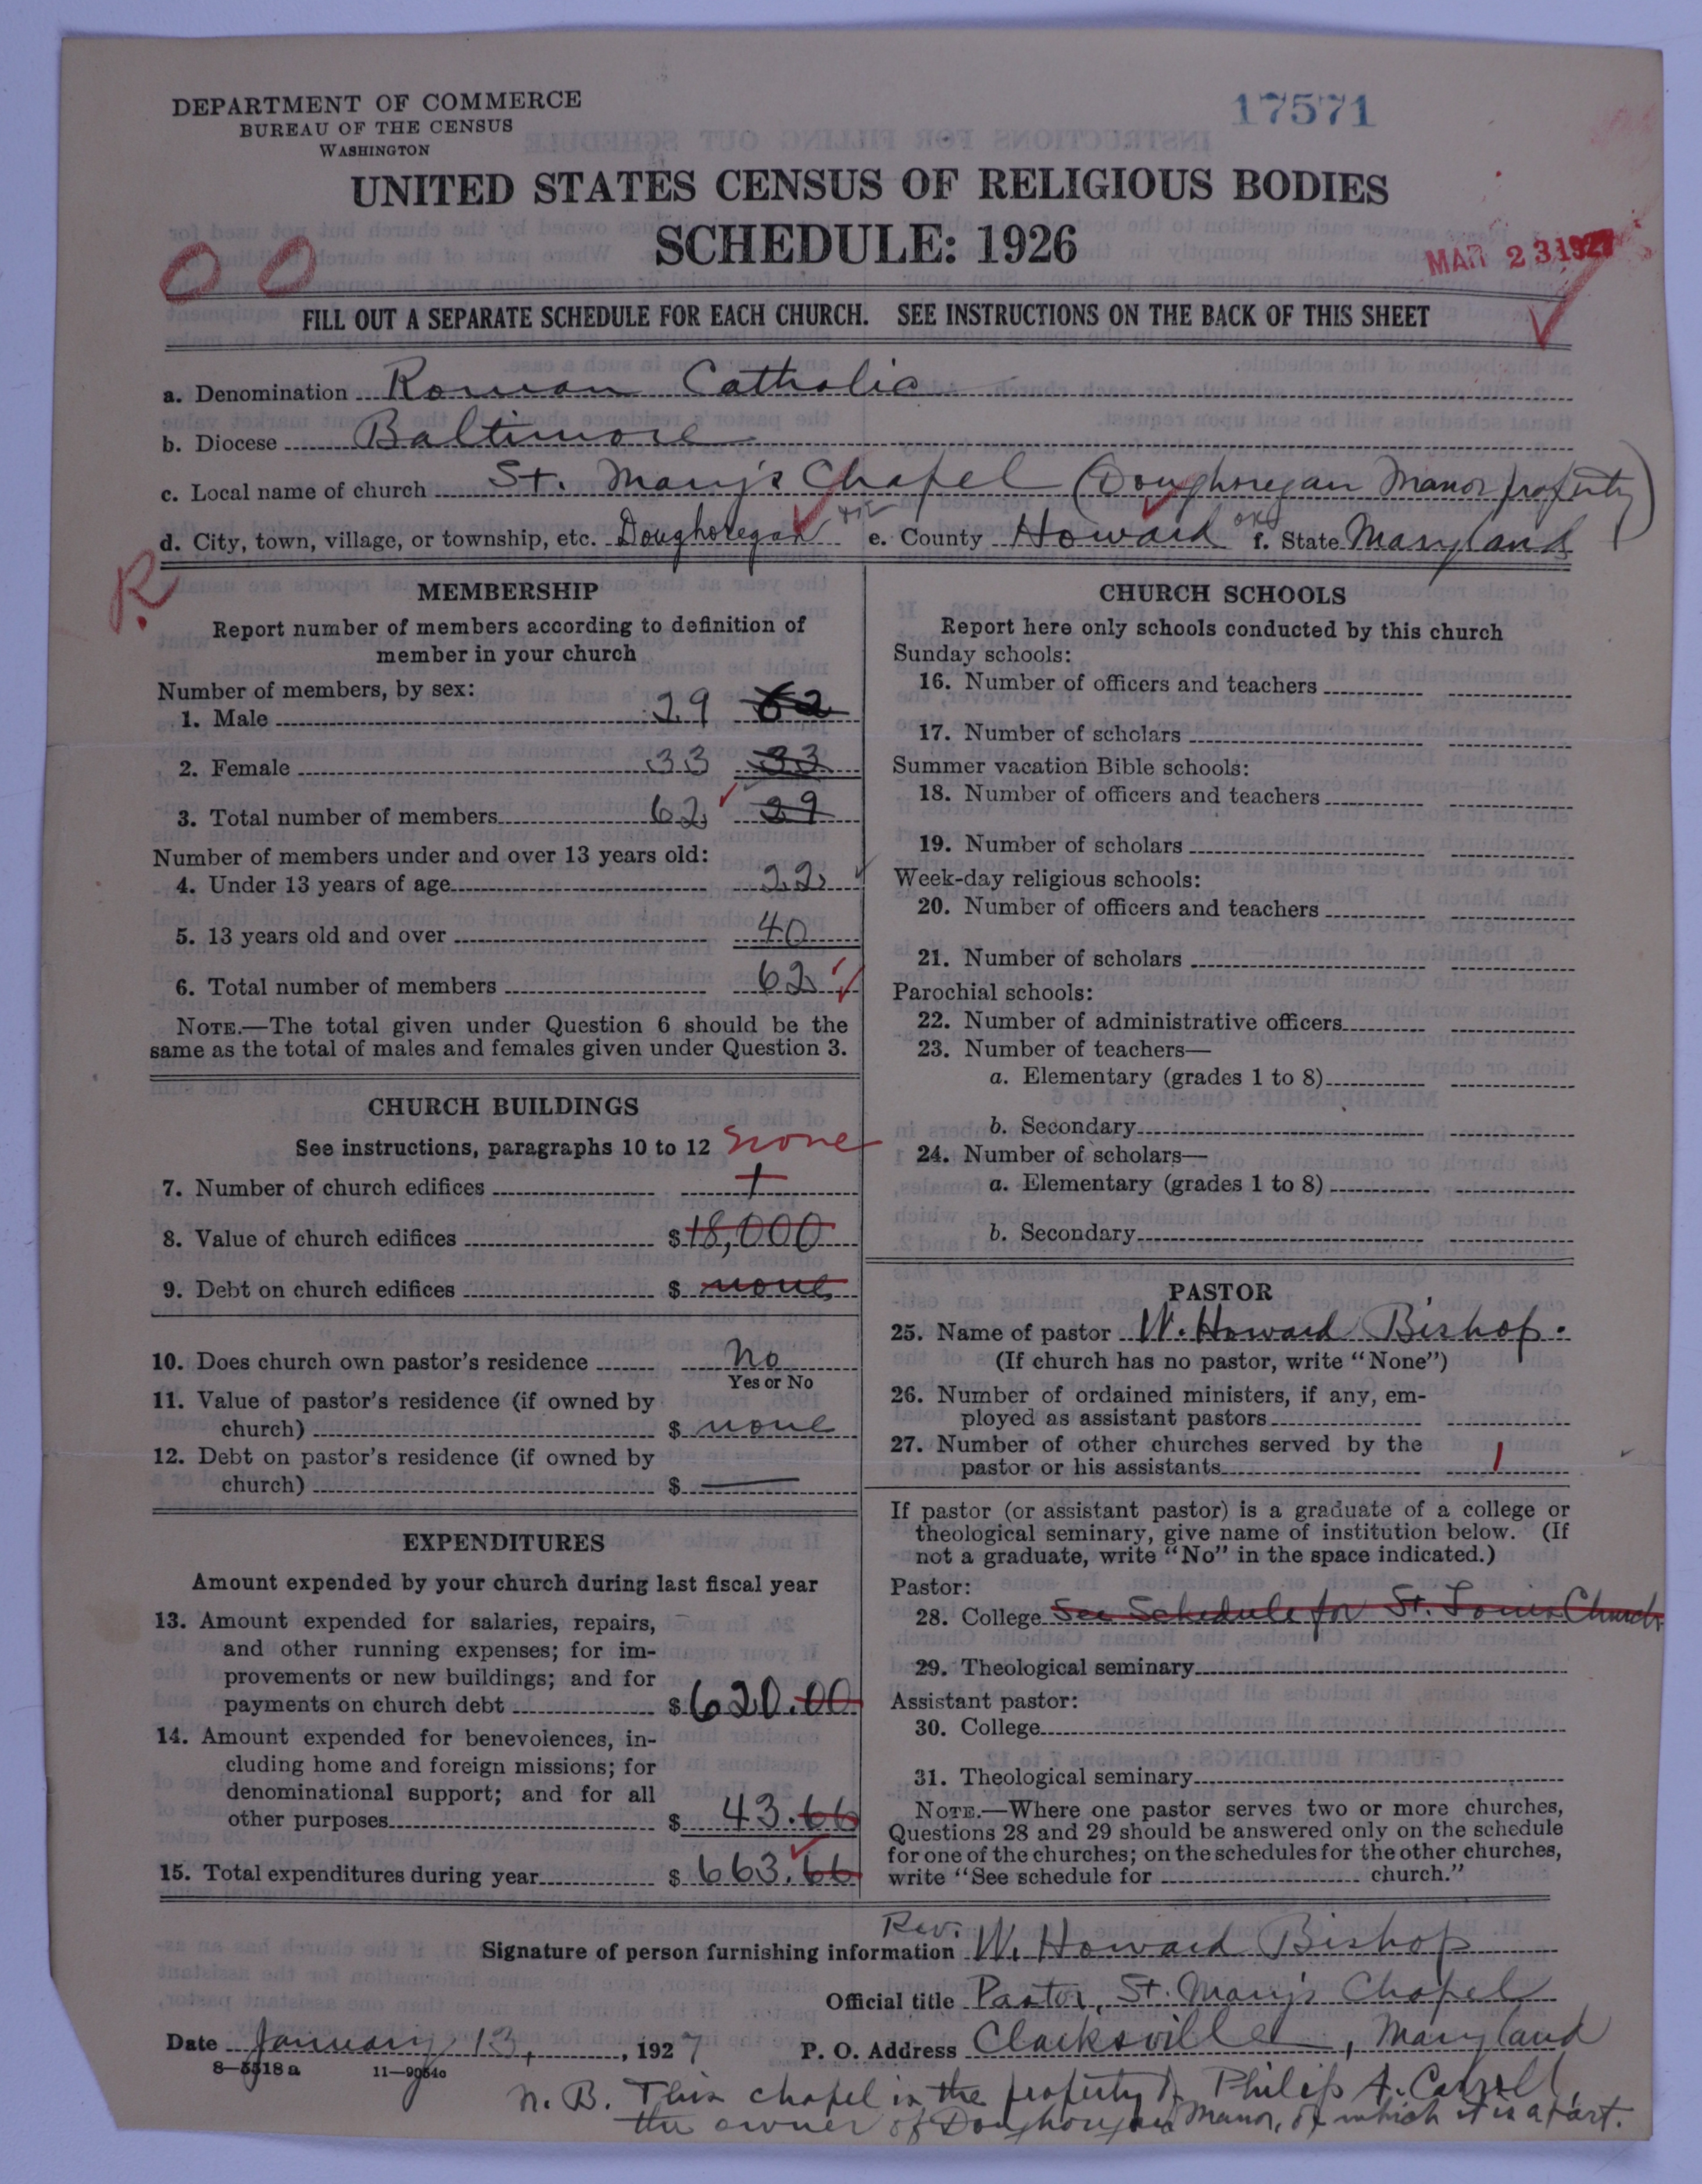 DEPARTMENT OF COMMERCE
BUREAU OF THE CENSUS
WASHINGTON
17571
UNITED STATES CENSUS OF RELIGIOUS BODIES
SCHEDULE: 1926
MAR 23 1927
00
FILL OUT A SEPARATE SCHEDULE FOR EACH CHURCH. SEE INSTRUCTIONS ON THE BACK OF THIS SHEET
a. Denomination Roman Catholic
b. Diocese Baltimore
c. Local name of church St. Mary's Chapel (Doughoregan Manor property)
d. City, town, village, or township, etc. Doughoregan e. County Howard f. State Maryland
R.
MEMBERSHIP
Report number of members according to definition of
member in your church
Number of members, by sex:
1. Male 29 62
2. Female 33 33
3. Total number of members 62 29
Number of members under and over 13 years old:
4. Under 13 years of age 22
5. 13 years old and over 40
6. Total number of members 62
NOTE.—The total given under Question 6 should be the
same as the total of males and females given under Question 3.
CHURCH BUILDINGS
See instructions, paragraphs 10 to 12 none
7. Number of church edifices 1
8. Value of church edifices $18,000
9. Debt on church edifices $ none
10. Does church own pastor's residence No
Yes or No
11. Value of pastor's residence (if owned by
church) $ none
12. Debt on pastor's residence (if owned by
church) $ —
EXPENDITURES
Amount expended by your church during last fiscal year
13. Amount expended for salaries, repairs,
and other running expenses; for im-
provements or new buildings; and for
payments on church debt $620.00
14. Amount expended for benevolences, in-
cluding home and foreign missions; for
denominational support; and for all
other purposes $ 43.66
15. Total expenditures during year $ 663.66
CHURCH SCHOOLS
Report here only schools conducted by this church
Sunday schools:
16. Number of officers and teachers
17. Number of scholars
Summer vacation Bible schools:
18. Number of officers and teachers
19. Number of scholars
Week-day religious schools:
20. Number of officers and teachers
21. Number of scholars
Parochial schools:
22. Number of administrative officers
23. Number of teachers—
a. Elementary (grades 1 to 8)
b. Secondary
24. Number of scholars—
a. Elementary (grades 1 to 8)
b. Secondary
PASTOR
25. Name of pastor W. Howard Bishop.
(If church has no pastor, write "None")
26. Number of ordained ministers, if any, em-
ployed as assistant pastors
27. Number of other churches served by the
pastor or his assistants 1
If pastor (or assistant pastor) is a graduate of a college or
theological seminary, give name of institution below. (If
not a graduate, write "No" in the space indicated.)
Pastor:
28. College See Schedule for St. Louis Church
29. Theological seminary
Assistant pastor:
30. College
31. Theological seminary
NOTE.—Where one pastor serves two or more churches,
Questions 28 and 29 should be answered only on the schedule
for one of the churches; on the schedules for the other churches,
write "See schedule for church."
Signature of person furnishing information Rev. W. Howard Bishop
Official title Pastor, St. Mary's Chapel
Date January 13, 1927 P. O. Address Clarksville, Maryland
8—5518a 11—9054c
N. B. This chapel is the property of Philip A. Carroll,
the owner of Doughoregan Manor, of which it is a part.